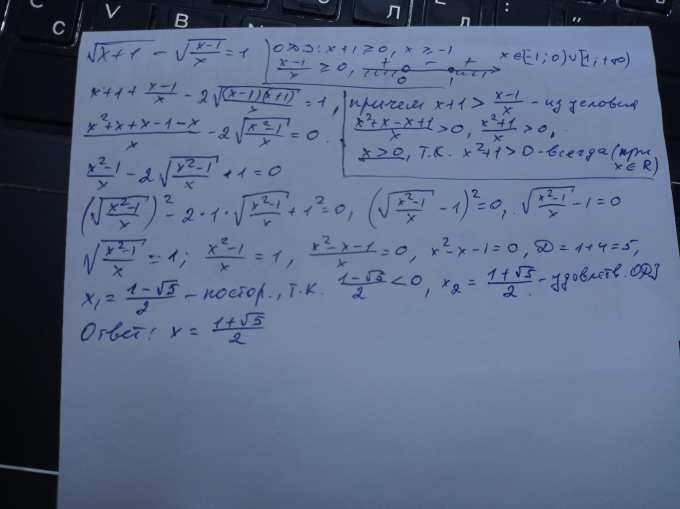 С C
V
B
Л
Д
:
√(x+1) − √((x−1)/x) = 1
ОДЗ: x+1 ≥ 0, x ≥ −1
(x−1)/x ≥ 0, + 0 − 1 + x ∈ [−1; 0) ∪ [1; +∞)
x+1 + (x−1)/x − 2√((x−1)(x+1)/x) = 1,
причем x+1 > (x−1)/x - из условия
(x²+x−x+1)/x > 0, (x²+1)/x > 0,
x > 0, т.к. x²+1 > 0 - всегда (при x ∈ R)
(x²+x+x−1−x)/x − 2√((x²−1)/x) = 0.
(x²−1)/x − 2√((x²−1)/x) + 1 = 0
(√((x²−1)/x))² − 2·1·√((x²−1)/x) + 1² = 0, (√((x²−1)/x) − 1)² = 0, √((x²−1)/x) − 1 = 0
√((x²−1)/x) = 1; (x²−1)/x = 1, (x²−x−1)/x = 0, x²−x−1 = 0, D = 1+4 = 5,
x₁ = (1−√5)/2 - постор., т.к. (1−√5)/2 < 0, x₂ = (1+√5)/2 - удовлетв. ОДЗ
Ответ: x = (1+√5)/2